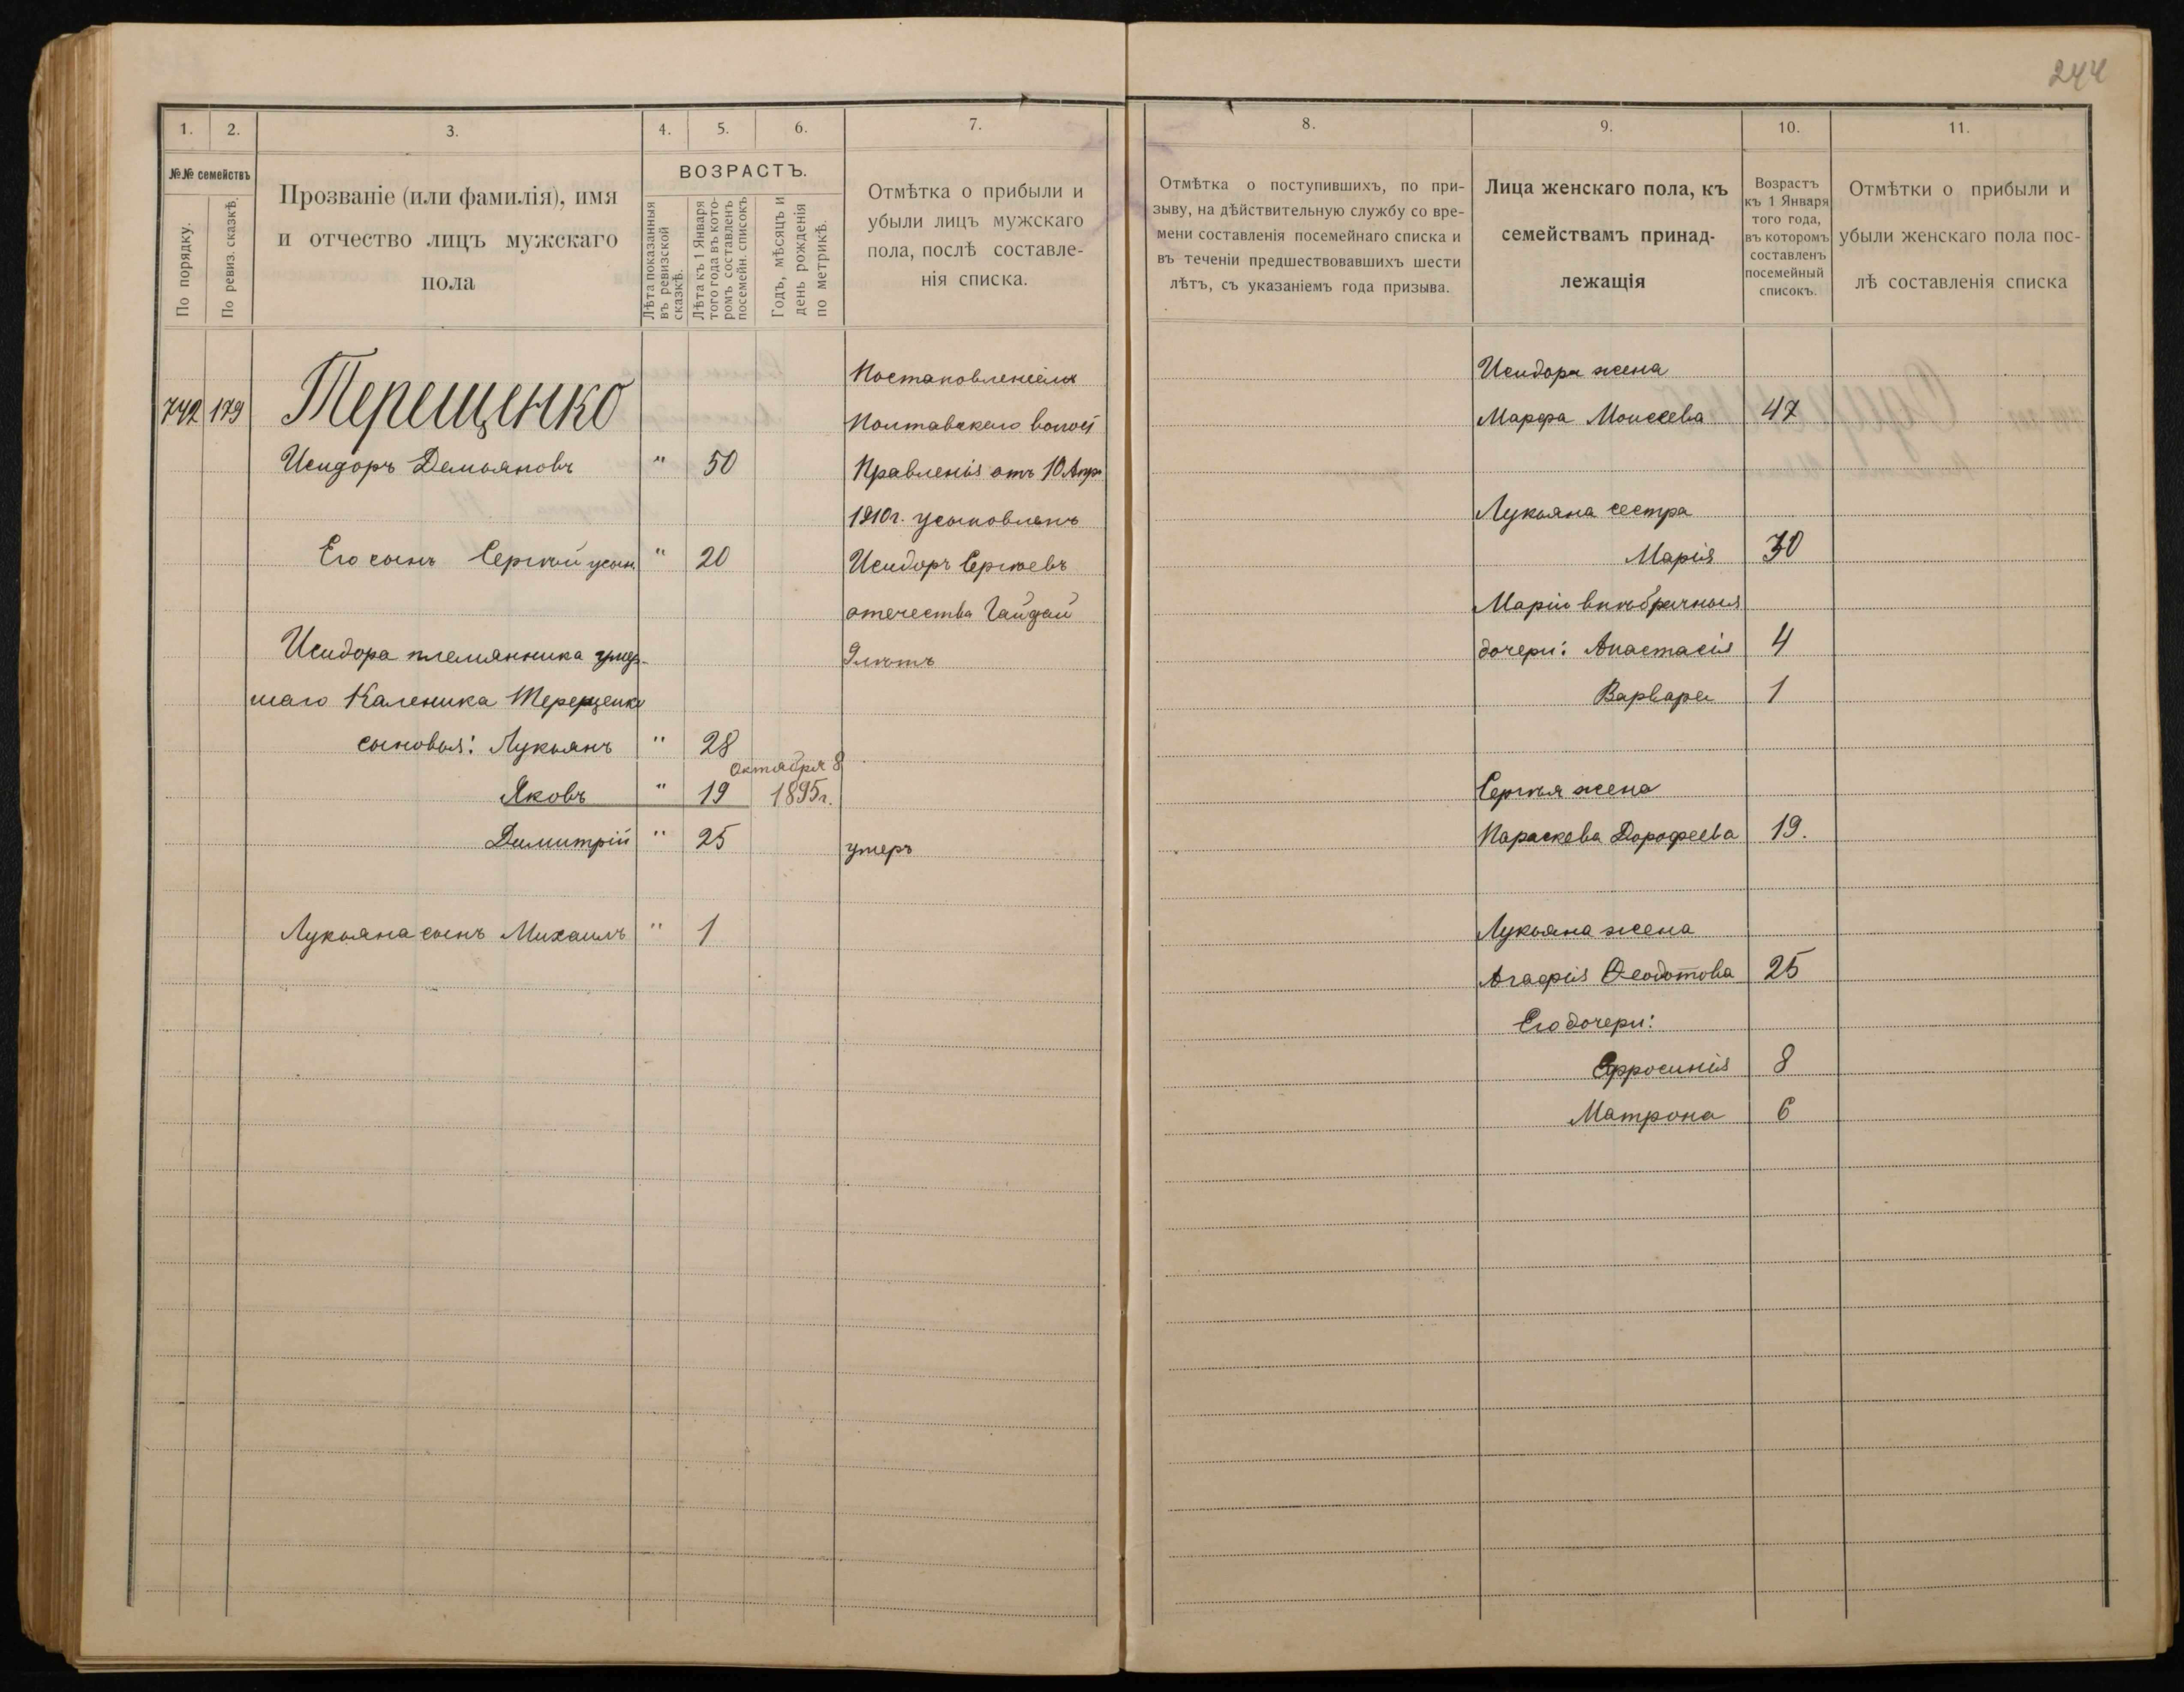 244
1.
2.
3.
4.
5.
6.
7.
№№ семействъ
По порядку.
По ревиз. сказкѣ.
Прозваніе (или фамилія), имя
и отчество лицъ мужскаго
пола
ВОЗРАСТЪ.
Лѣта показанныя
въ ревизской
сказкѣ.
Лѣта къ 1 Января
того года въ кото-
ромъ составленъ
посемейн. списокъ
Годъ, мѣсяцъ и
день рожденія
по метрикѣ.
Отмѣтка о прибыли и
убыли лицъ мужскаго
пола, послѣ составле-
нія списка.
742 179 Терещенко
Исидоръ Демьяновъ " 50
Его сынъ Сергѣй усын. " 20
Исидора племянника умер-
шаго Каленика Терещенко
сыновья: Лукьянъ " 28
Октября 8
Яковъ " 19 1895г.
Димитрій " 25 умеръ
Лукьяна сынъ Михаилъ " 1
Постановленіемъ
Полтавскаго волост
Правленія отъ 10 Апр.
1910г. усыновленъ
Исидоръ Сергѣевъ
отечества Гайдай
9 лѣтъ
8.
9.
10.
11.
Отмѣтка о поступившихъ, по при-
зыву, на дѣйствительную службу со вре-
мени составленія посемейнаго списка и
въ теченіи предшествовавшихъ шести
лѣтъ, съ указаніемъ года призыва.
Лица женскаго пола, къ
семействамъ принад-
лежащія
Возрастъ
къ 1 Января
того года,
въ которомъ
составленъ
посемейный
списокъ.
Отмѣтки о прибыли и
убыли женскаго пола пос-
лѣ составленія списка
Исидора жена
Марфа Моисеева 47
Лукьяна сестра
Марія 30
Маріи внѣбрачныя
дочери: Анастасія 4
Варвара 1
Сергѣя жена
Параскева Дорофеева 19.
Лукьяна жена
Агафія Ѳеодотова 25
Его дочери:
Ефросинія 8
Матрона 6